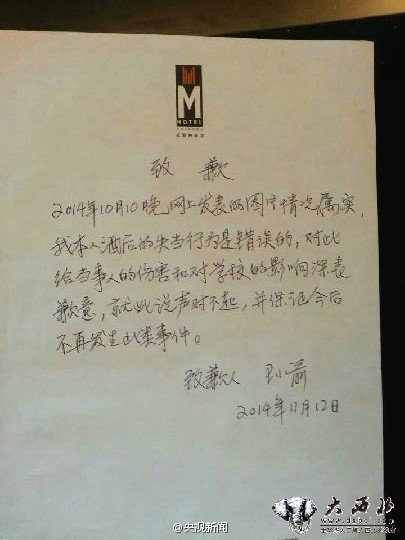 M
HOTEL
CHENGDU
致歉
2014年10月10晚网上发表的图片情况属实，
我本人酒后的失当行为是错误的，对此
给当事人的伤害和对学校的影响深表
歉意，就此说声对不起，并保证今后
不再发生此类事件。
致歉人
2014年11月12日
@央视新闻
大西北